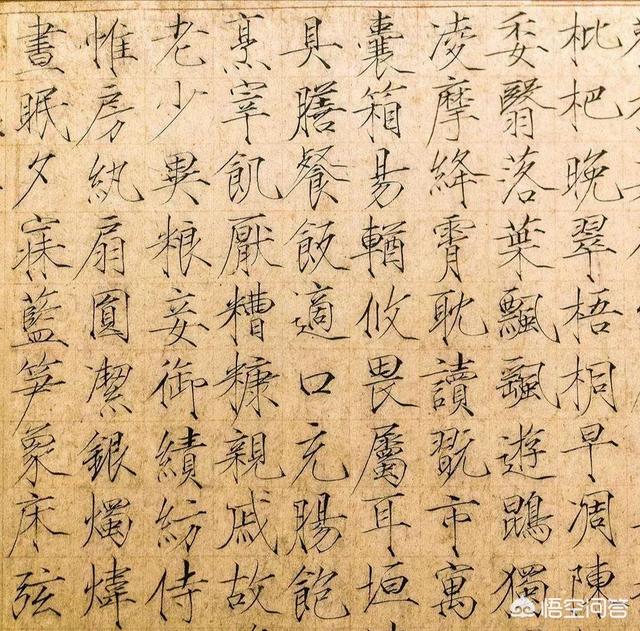 枇杷晚翠梧桐早凋陳
委翳落葉飄飖遊鵾獨
凌摩絳霄耽讀翫市寓
囊箱易輶攸畏屬耳垣
具膳餐飯適口充腸飽
烹宰飢厭糟糠親戚故
老少異粮妾御績紡侍
惟房紈扇圓潔銀燭煒
晝眠夕寐藍笋象床弦
悟空问答